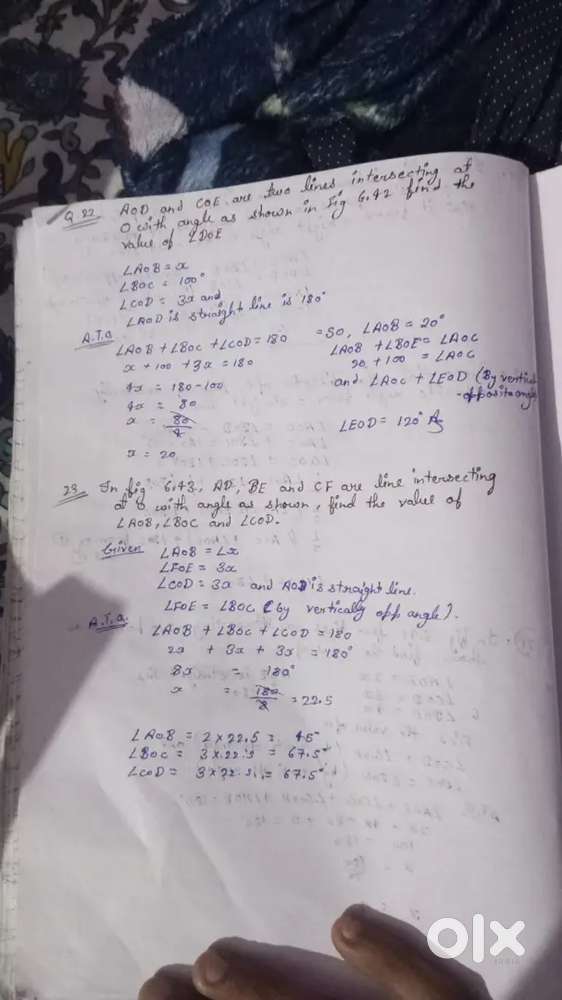 Q 22 AOD and COE are two lines intersecting at
O with angle as shown in fig 6.42 find the
value of ∠DOE
∠AOB = x
∠BOC = 100°
∠COD = 3x and
∠AOD is straight line is 180°
A.T.Q
∠AOB + ∠BOC + ∠COD = 180
x + 100 + 3x = 180
4x = 180-100
4x = 80
x = 80/4
x = 20
= SO, ∠AOB = 20°
∠AOB + ∠BOE = ∠AOC
20 + 100 = ∠AOC
and ∠AOC + ∠EOD (By vertical
-opposite angle
∠EOD = 120°
23. In fig 6.43, AD, BE and CF are line intersecting
at O with angle as shown, find the value of
∠AOB, ∠BOC and ∠COD.
Given ∠AOB = ∠x
∠FOE = 3x
∠COD = 3x and AOD is straight line.
∠FOE = ∠BOC (by vertically opp angle).
A.T.Q.
∠AOB + ∠BOC + ∠COD = 180
2x + 3x + 3x = 180°
8x = 180°
x = 180/8 = 22.5
∠AOB = 2 x 22.5 = 45°
∠BOC = 3 x 22.5 = 67.5°
∠COD = 3 x 22.5 = 67.5°
olx
INDIA